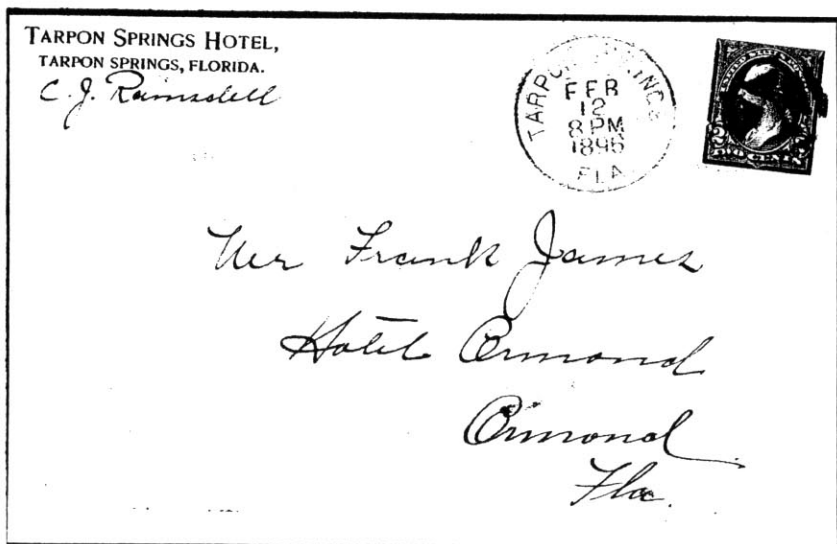 TARPON SPRINGS HOTEL,
TARPON SPRINGS, FLORIDA.
C. J. Ramsdell
TARPON SPRINGS
FEB
12
8 PM
1895
FLA
UNITED STATES
TWO CENTS
Mr Frank James
Hotel Ormond
Ormond
Fla.